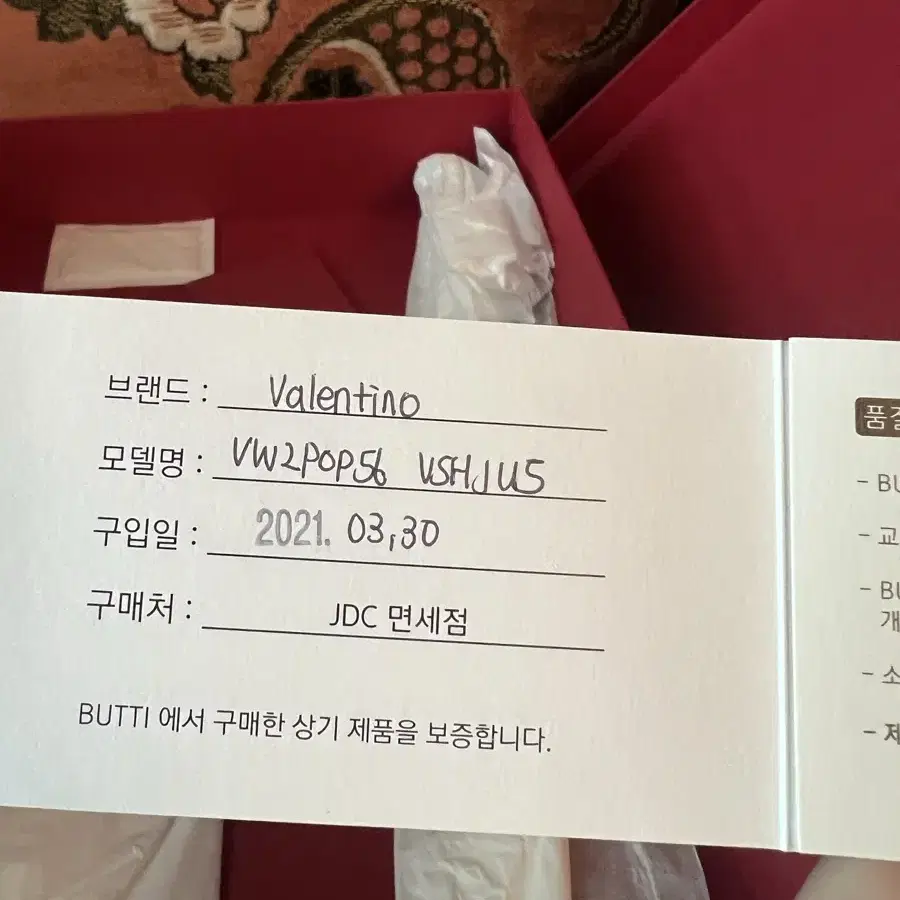 브랜드 : Valentino
모델명 : VW2P0P56 VSHJU5
구입일 : 2021. 03,30
구매처 : JDC 면세점
BUTTI 에서 구매한 상기 제품을 보증합니다.
품
- BU
- 교
- BU
개
- 소
- 제